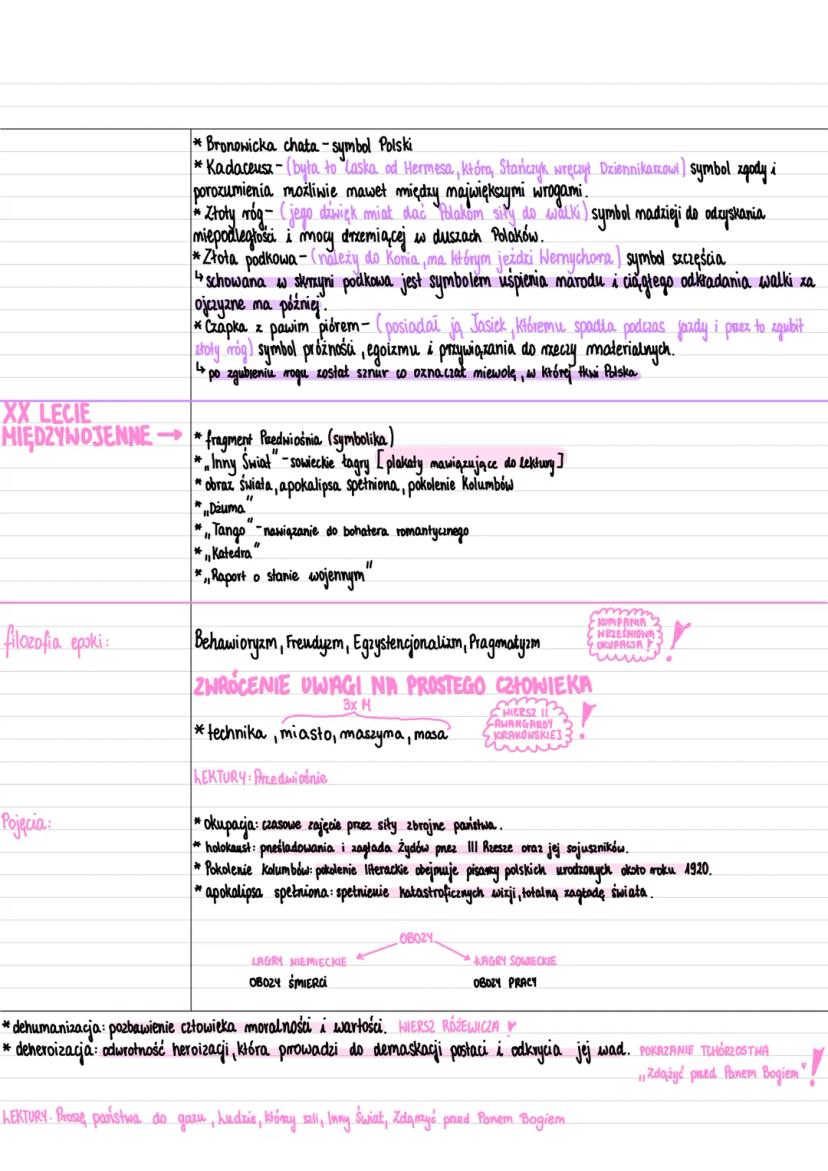 * Bronowicka chata - symbol Polski
* Kadaceusz - (była to laska od Hermesa, którą Stańczyk wręczył Dziennikarzowi) symbol zgody i
porozumienia możliwie nawet między największymi wrogami.
* Złoty róg - (jego dźwięk miał dać Polakom siły do walki) symbol nadzieji do odzyskania
niepodległości i mocy drzemiącej w duszach Polaków.
* Złota podkowa - (należy do Konia, na którym jeździ Wernychora) symbol szczęścia
↳ schowana w skrzyni podkowa jest symbolem uśpienia narodu i ciągłego odkładania walki za
ojczyznę na później.
* Czapka z pawim piórem - (posiadał ją Jasiek, któremu spadła podczas jazdy i przez to zgubił
złoty róg) symbol próżności, egoizmu i przywiązania do rzeczy materialnych.
↳ po zgubieniu rogu został sznur co oznaczał niewolę, w której tkwi Polska
XX LECIE
MIĘDZYWOJENNE →
* fragment Przedwiośnia (symbolika)
* „Inny Świat" - sowieckie łagry [plakaty nawiązujące do lektury]
* obraz świata, apokalipsa spełniona, pokolenie Kolumbów
* „Dżuma"
* „Tango" - nawiązanie do bohatera romantycznego
* „Katedra"
* „Raport o stanie wojennym"
filozofia epoki:
Behawioryzm, Freudyzm, Egzystencjonalizm, Pragmatyzm
KOMPANIA
WRZEŚNIOWA
OKUPACJA !
ZWRÓCENIE UWAGI NA PROSTEGO CZŁOWIEKA
3x M
* technika, miasto, maszyna, masa
WIERSZ II
AWANGARDY
KRAKOWSKIEJ !
LEKTURY: Przedwiośnie
Pojęcia:
* okupacja: czasowe zajęcie przez siły zbrojne państwa.
* holokaust: prześladowania i zagłada Żydów przez III Rzeszę oraz jej sojuszników.
* Pokolenie Kolumbów: pokolenie literackie obejmuje pisarzy polskich urodzonych około roku 1920.
* apokalipsa spełniona: spełnienie katastroficznych wizji, totalną zagładę świata.
OBOZY
ŁAGRY NIEMIECKIE
ŁAGRY SOWIECKIE
OBOZY ŚMIERCI
OBOZY PRACY
* dehumanizacja: pozbawienie człowieka moralności i wartości. WIERSZ RÓŻEWICZA ♥
* deheroizacja: odwrotność heroizacji, która prowadzi do demaskacji postaci i odkrycia jej wad. POKAZANIE TCHÓRZOSTWA
„Zdążyć przed Panem Bogiem" !
LEKTURY: Proszę państwa do gazu, Ludzie, którzy szli, Inny Świat, Zdążyć przed Panem Bogiem